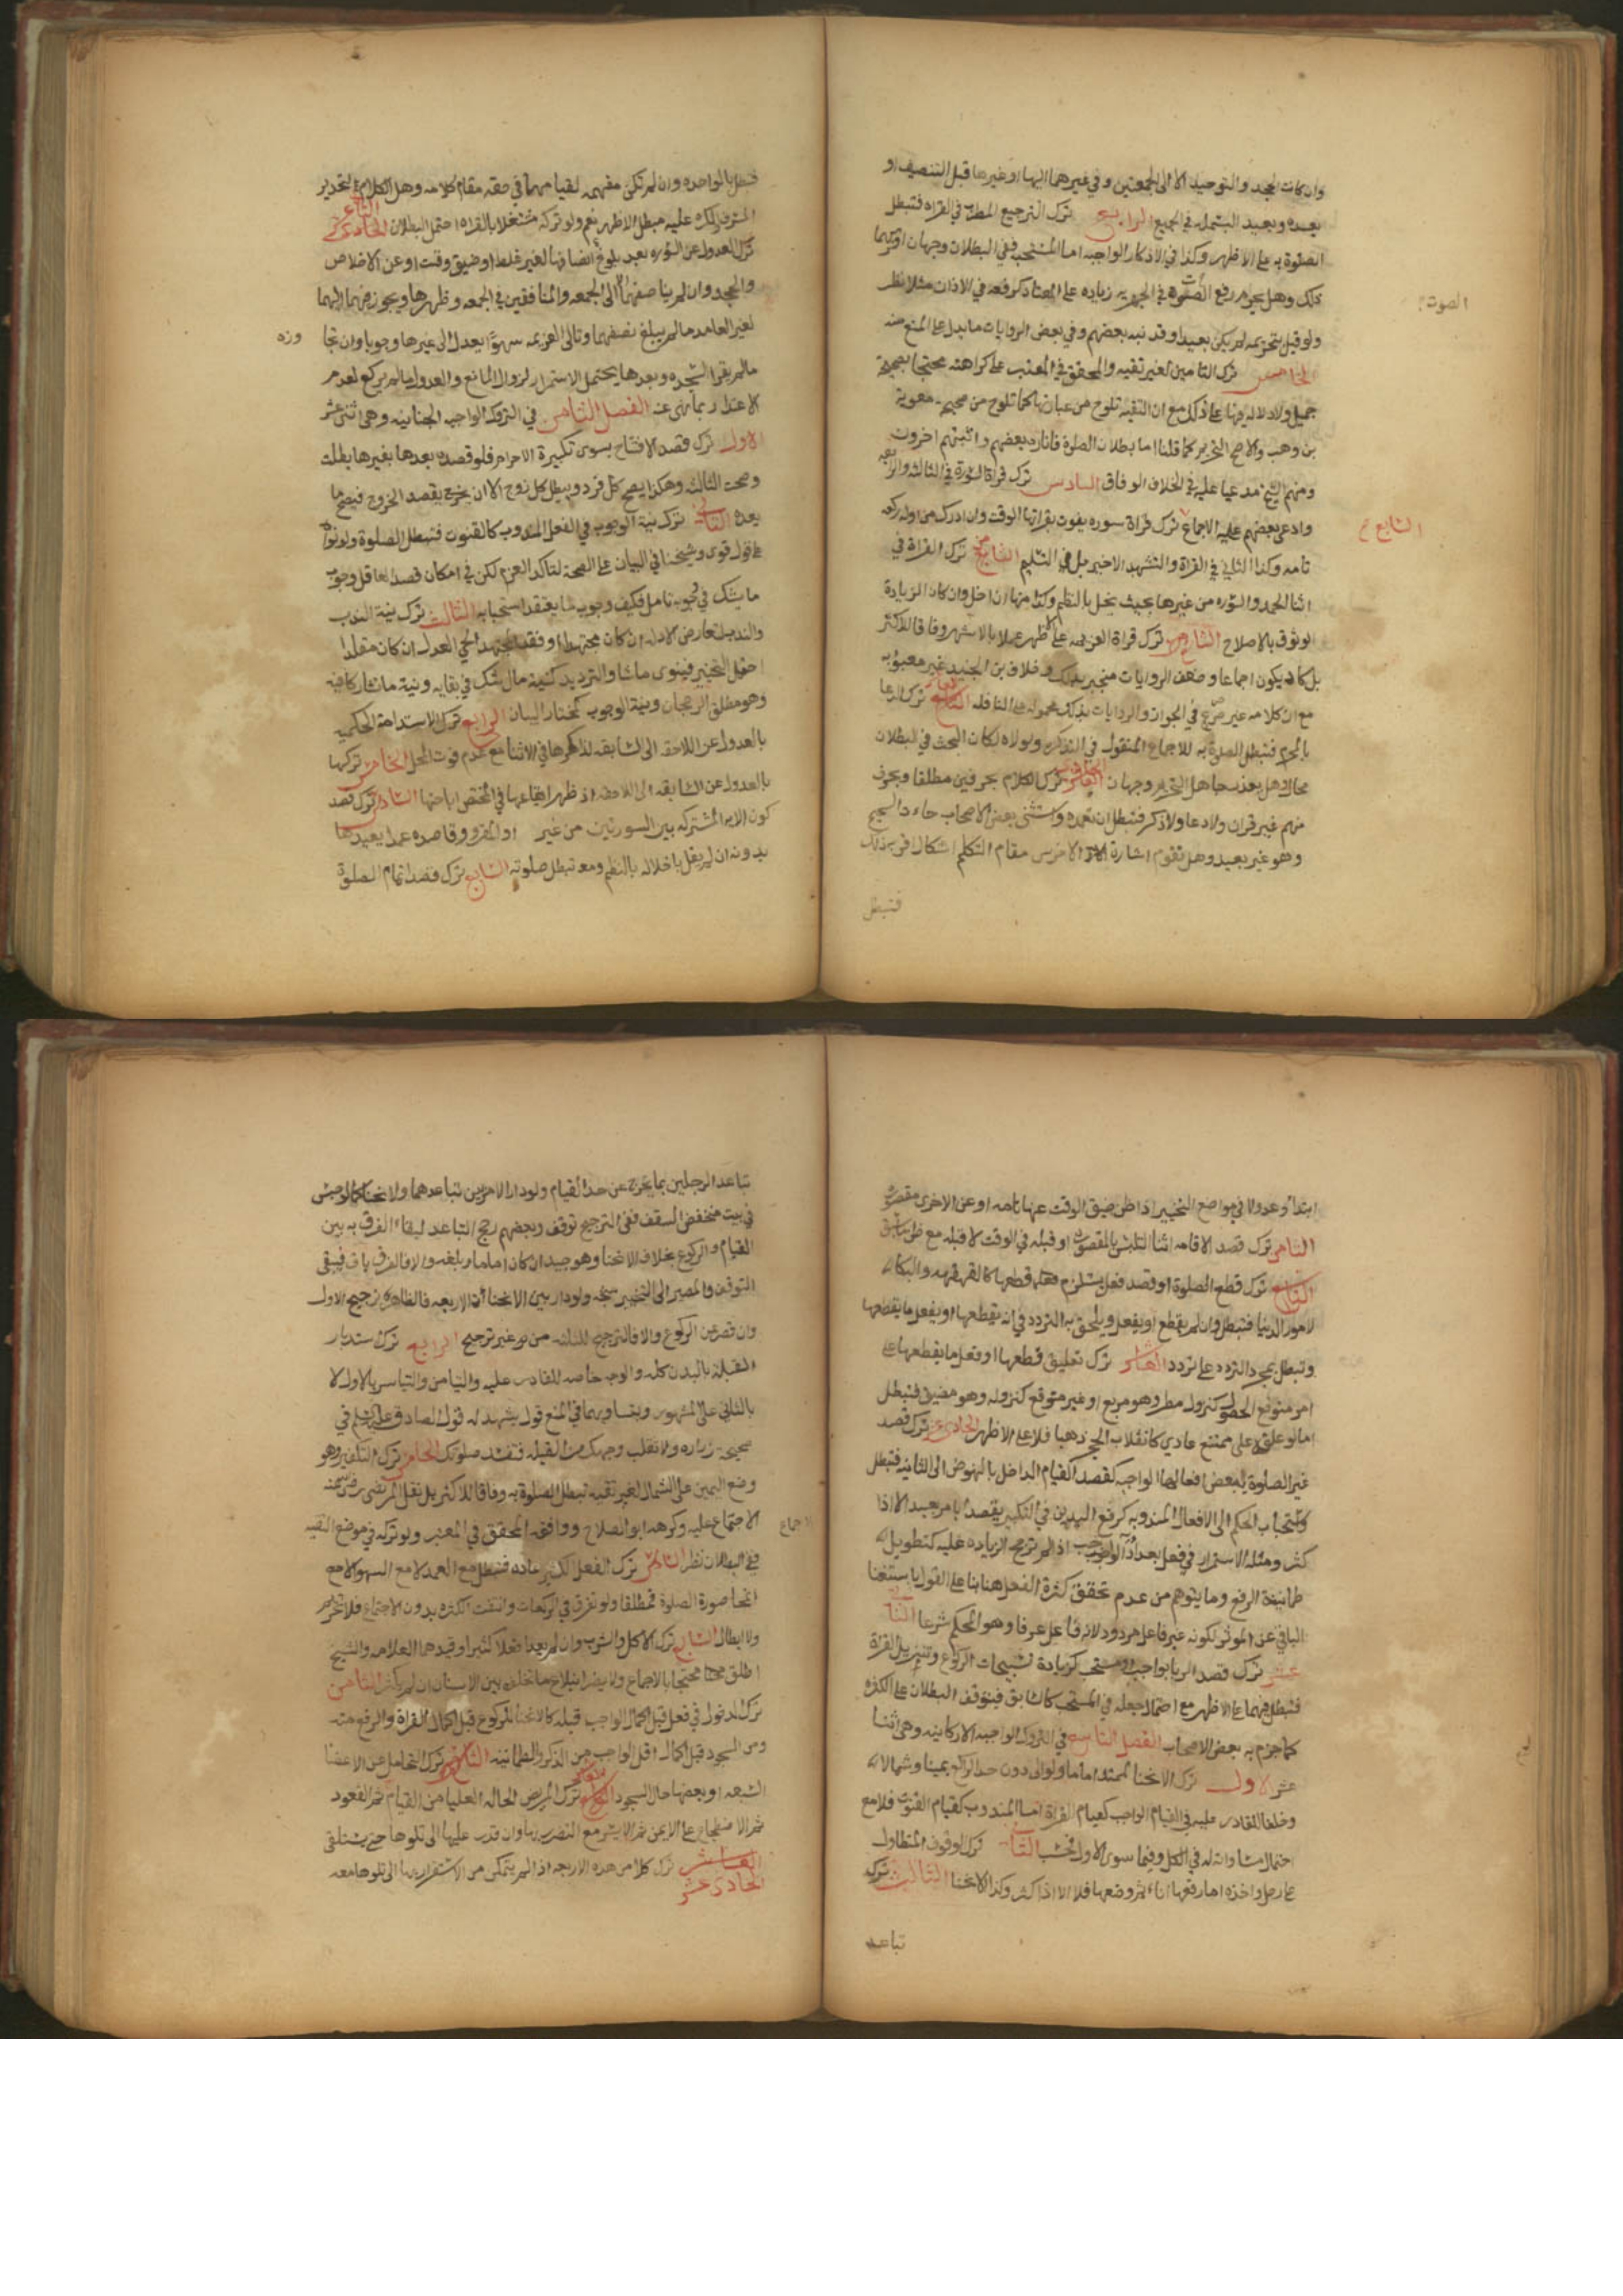 وان كانت الجحد والتوحيد الا الى الجمعتين وفي غيرهما اليها او غيرها قبل التنصيف او
بعده ويعيد البسملة في الجميع الرابع ترك الترجيع المطرب في القراه فتبطل
الصلوة به على الاظهر وكذا في الاذكار الواجبه اما المستحبة ففي البطلان وجهان اقربهما
ذلك وهل يحرم رفع الصوت في الجهريه زياده على المعتاد كرفعه في الاذان مثلا نظر
الصوت
ولو قيل بتحريمه لم يكن بعيدا وقد نبه بعضهم وفي بعض الروايات ما يدل على المنع منه
الخامس ترك التامين لغير تقيه والمحقق في المعتبر على كراهته محتجا بصحيحة
جميل ولا دلاله فيها على ذلك مع ان التقيه تلوح من عبارتها كما تلوح من صحيحه معوية
بن وهب والاصح التحريم كما قلنا اما بطلان الصلوة فانكره بعضهم واثبته اخرون
ومنهم الشيخ مدعيا عليه في الخلاف الوفاق السادس ترك قراة السورة في الثالثه والرابعه
وادعى بعضهم عليه الاجماع ترك قراة سوره يفوت بقراتها الوقت وان ادرك من اوله ركعه
السابع
تامه وكذا التانى في القراة والتشهد الاخير بل في التسليم الثامن ترك القراة في
اثنا الحمد والسوره من غيرها بحيث يخل بالنظم وكذا منها ان اخل وان كان الزيادة
الوثوق بالاصلاح التاسع ترك قراة العزيمه على الاظهر عملا بالاشهر وفاقا للاكثر
بل كاد يكون اجماعا وضعف الروايات منجبر بذلك وخلاف بن الجنيد غير معبوء به
مع ان كلامه غير صريح في الجواز والروايات بذلك محمولة على النافله ترك الدعا
بالمحرم فتبطل الصلوة به للاجماع المنقول في التذكره ولولاه لكان البحث في البطلان
مجال وهل يعذر جاهل التحريم وجهان ترك الكلام بحرفين مطلقا وبحرف
مفهم غير قران ولا دعا ولا ذكر فتبطل ان تعمده واستثنى بعض الاصحاب حاء دال
وهو غير بعيد وهل تقوم اشارة الاخرس مقام التكلم اشكال اقربه ذلك
فتبطل
فتبطل بالواحده وان لم تكن مفهمه لقيامها في حقه مقام كلامه وهل الكلام لتحذير
المشرف على عليه مبطل الاظهر نعم ولو تركه مشتغلا بالقراه احتمل البطلان الحادي عشر
ترك العدول عن السوره بعد بلوغ انصافها لغير غلط او ضيق وقت او عن الاخلاص
والجحد وان لم يناصفهما الا الى الجمعه والمنافقين في الجمعه وظهرها ويجوز منهما اليهما
لغير العامد ما لم يبلغ نصفهما وتالى العزيمه سهوا يعدل الى غيرها وجوبا وان تجا
وزه
ما لم يقرا السجده وبعدها يحتمل الاستمرار لزوال المانع والعدول ما لم يركع لعدم
الاعتداد بما نهى عنه الفصل الثامن في التروك الواجبه الجنانيه وهي اثنى عشر
الاول ترك قصد الافتتاح بسوى تكبيرة الاحرام فلو قصده بعدها بغيرها بطلت
وصحت الثالثه وهكذا يصح كل فرد ويبطل كل زوج الا ان يخرج بقصد الخروج فيصح ما
بعده الثاني ترك نية الوجوب في الفعل المندوب كالقنوت فتبطل الصلوة ولو نواه
على قول قوى وشيخنا في البيان على الصحة لتاكد العزم لكن في امكان قصد العاقل وجوب
ما يشك في وجوبه تامل فكيف وجوبه ما يعتقد استحبابه الثالث ترك نية الندب
والندب لتعارض الادله ان كان مجتهدا وفقد المجتهد الحي العدل ان كان مقلدا
احتمل التخيير فينوى ما شا والترديد كنية مال شك في بقايه ونية ما شا كافيه
وهو مطلق الرجحان ونية الوجوب كمختار البيان الرابع ترك الاستدامة الحكميه
بالعدول عن اللاحقه الى السابقه لذكرها في الاثنا مع عدم فوت المحل الخامس تركها
بالعدول عن السابقه الى اللاحقه اذ ظهر ايقاعها في المختص السادس ترك قصد
كون الايه المشتركه بين السورتين من غير او المقرو وقاصده عمدا يعيدها
بدونه ان لم يقل باخلاله بالنظم ومعه تبطل صلوته السابع ترك قصد اتمام الصلوة
ابتدا وعدولا في مواضع التخيير اذا ظن ضيق الوقت عنها تامه او عن الاخرى مقصوره
الثامن ترك قصد الاقامه اثنا التلبس بالمقصوره او قبله في الوقت لا قبله مع ظن
التاسع ترك قطع الصلوة او قصد فعل يستلزم قطعها كالقهقهه والبكاء
لامور الدنيا فتبطل وان لم يقطع او يفعل ويلحق به التردد في انه يقطعها او يفعل ما يقطعها
وتبطل بمجرد التردد على تردد العاشر ترك تعليق قطعها او فعل ما يقطعها على
امر متوقع الحصول كنزول مطر وهو مريع او غير متوقع كنزوله وهو مضيق فتبطل
اما لو علق على ممتنع عادي كانقلاب الحجر ذهبا فلا على الاظهر الحادي عشر ترك قصد
غير الصلوة ببعض افعالها الواجبه كقصد القيام الداخل بالنهوض الى الثانيه فتبطل
وانسحاب الحكم الى الافعال المندوبه كرفع اليدين في التكبير بقصد غير بعيد الا اذا
كثر ومثله الاستمرار في فعل بعد اداء الواجب اذ لم ترجح الزياده عليه كتطويل
طمانينة الرفع وما يتوهم من عدم تحقق كثرة الفعل هنا بنا على القول باستغنا
الباقي عن المؤثر لكونه غير فاعل مردود لانه فاعل عرفا وهو المحكم شرعا الثاني
عشر ترك قصد الريا بواجب او مستحب كزيادة تسبيحات الركوع وتنزيل القراة
فتبطل فيهما على الاظهر مع احتمال جعله في المستحب كالسابق فيتوقف البطلان على الكثره
كما جزم به بعض الاصحاب الفصل التاسع في التروك الواجبه الاركانيه وهي اثنا
عشر الاول ترك الانحنا للمبتدا اماما ولو الى دون حد الراكع يمينا وشمالا
وخلفا للقادر عليه في القيام الواجب كقيام القراة اما المندوب كقيام القنوت فلا مع
احتمال مساواته له في الكل وفيما سوى الاول فحسب الثاني ترك الوقوف المتطاول
على رجل واخذه اما رفعها انا ثم وضعها فلا الا اذا كثر وكذا الانحنا الثالث ترك
تباعد
تباعد الرجلين بما يخرج عن حد القيام ولو دار الامر بين تباعدهما والانحنا
في بيت منخفض السقف ففي الترجيح توقف وبعضهم رجح التباعد لبقاء الفرق به بين
القيام والركوع بخلاف الانحنا وهو جيد ان كان اماما وبلغه والا فالفرق باق فيبقى
التوقف والمصير الى التخيير متجه ولو دار بين الانحنا الاربعه فالظاهر ترجيح الاول
وان قصر عن الركوع والا فالترجيح للثلثه من غير ترجيح الرابع ترك استدبار
القبلة بالبدن كله والوجه خاصه للقادر عليه والتيامن والتياسر بالاول لا
بالثاني على المشهور وتساويهما في المنع قول يشهد له قول الصادق عليه السلم في
صحيحه زراره ولا تقلب وجهك من القبله فتفسد صلوتك الخامس ترك التكفير وهو
وضع اليمين على الشمال لغير تقيه تبطل الصلوة به وفاقا للاكثر بل نقل المرتضى رضي الله عنه
الاجماع عليه وكرهه ابو الصلاح ووافقه المحقق في المعتبر ولو تركه في موضع التقيه
الاجماع
ففي البطلان نظر السادس ترك الفعل الكثير عاده فتبطل مع العمد لا مع السهو الا مع
انمحا صورة الصلوة فمطلقا ولو تفرق في الركعات وانتفت الكثره بدون الاجتماع فلا تحريم
ولا ابطال السابع ترك الاكل والشرب وان لم يعدا فعلا كثيرا وقيدهما العلامه والشيخ
اطلق محتجا بالاجماع ولا يضر ابتلاع ما تخلف بين الاسنان ان لم يكثر الثامن
ترك الدخول في فعل قبل اكمال الواجب قبله كالانحنا للركوع قبل اكمال القراة والرفع منه
ومن السجود قبل اكمال اقل الواجب من الذكر والطمانينه التاسع ترك التحامل عن الاعضا
السبعه او بعضها حال السجود العاشر ترك المريض الحاله العليا من القيام ثم القعود
ثم الاضطجاع على الايمن ثم الايسر مع التضرر بها وان قدر عليها الى تلوها حتى يستلقى
العاشر ترك كلا من هذه الاربعه اذا لم يتمكن من الاستقرار بها الى تلوها معه
الحادي عشر